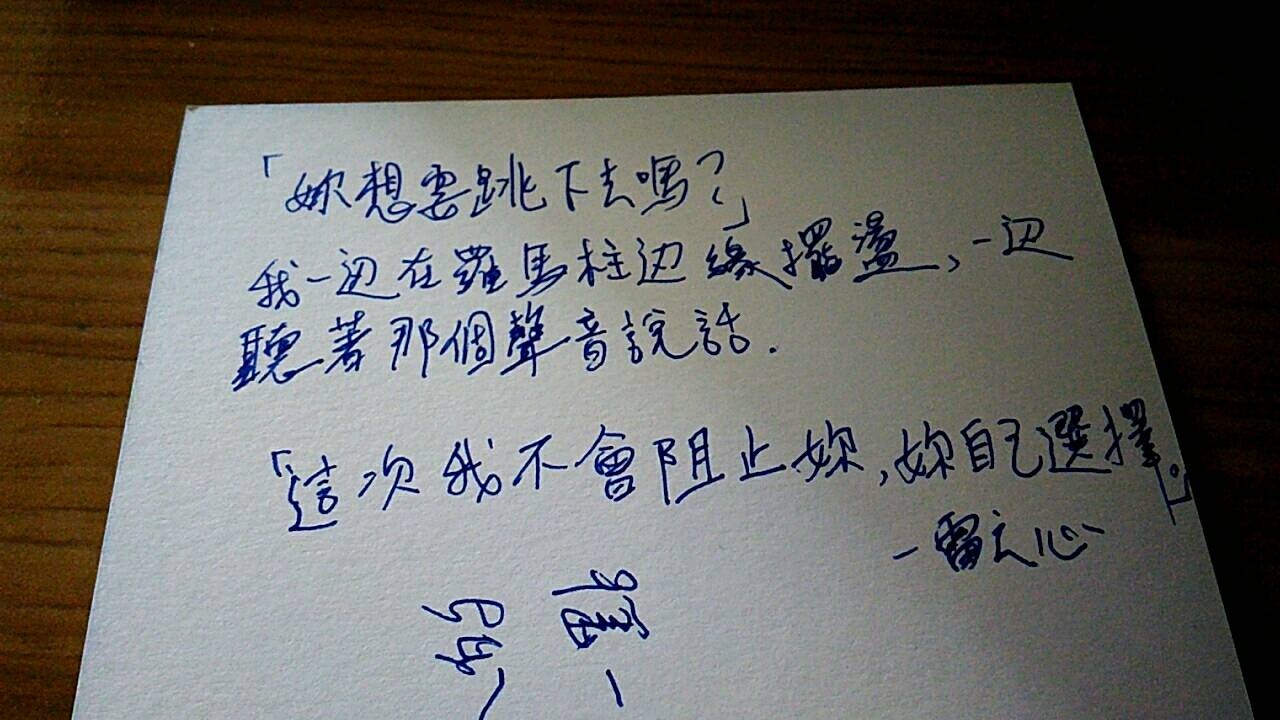 「妳想要跳下去嗎？」
我一边在羅馬柱边緣擺盪，一边
聽著那個聲音說話．
「這次我不會阻止妳，妳自己選擇。」
－雷玄心